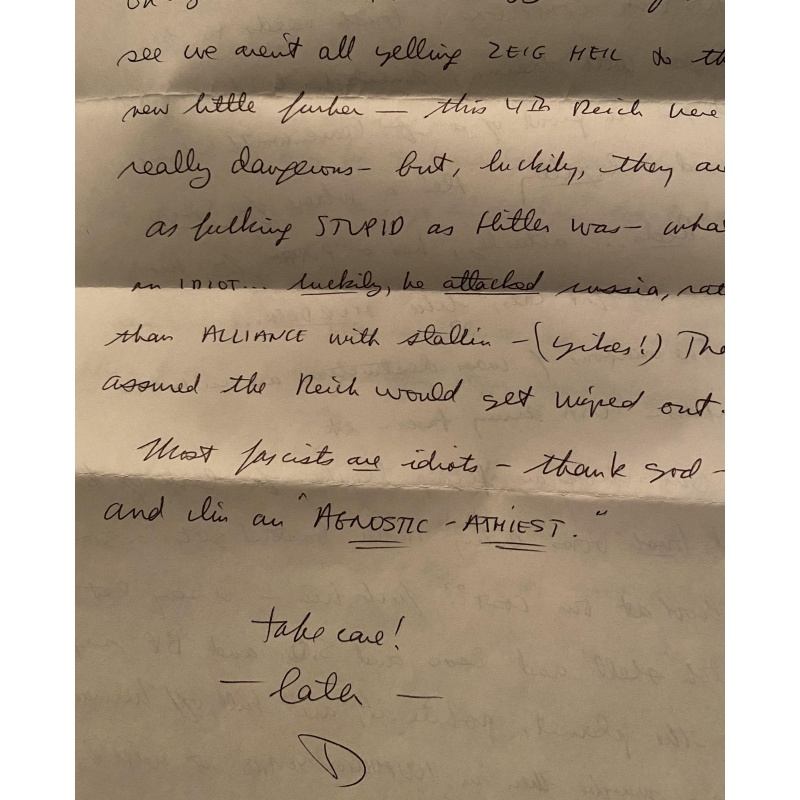 see we aren't all yelling ZEIG HEIL to th
new little furher — this 4th Reich here
really dangerous - but, luckily, they ar
as fulking STUPID as Hitler was — wha
an IDIOT... luckily, he attacked russia, rat
than ALLIANCE with stallin - (yikes!) The
assured the Reich would get wiped out.
Most fascists are idiots - thank god -
and I'm an "AGNOSTIC - ATHIEST."
take care!
— later —
D